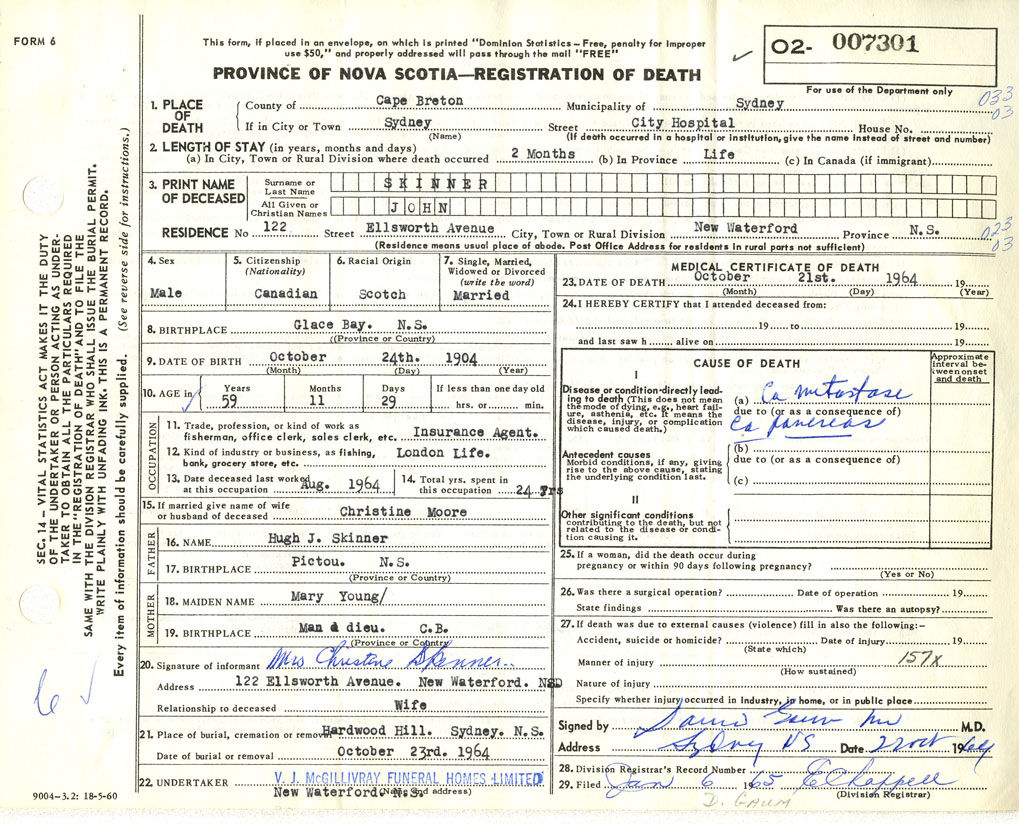 FORM 6
This form, if placed in an envelope, on which is printed "Dominion Statistics – Free, penalty for improper
use $50," and properly addressed will pass through the mail "FREE"
PROVINCE OF NOVA SCOTIA—REGISTRATION OF DEATH
02- 007301
For use of the Department only
033
03
1. PLACE OF DEATH
County of Cape Breton Municipality of Sydney
If in City or Town Sydney Street City Hospital House No.
(Name) (If death occurred in a hospital or institution, give the name instead of street and number)
2. LENGTH OF STAY (in years, months and days)
(a) In City, Town or Rural Division where death occurred 2 Months (b) In Province Life (c) In Canada (if immigrant)
3. PRINT NAME OF DECEASED
Surname or Last Name SKINNER
All Given or Christian Names JOHN
RESIDENCE No 122 Street Ellsworth Avenue City, Town or Rural Division New Waterford Province N.S.
(Residence means usual place of abode. Post Office Address for residents in rural parts not sufficient)
023
03
4. Sex
Male
5. Citizenship
(Nationality)
Canadian
6. Racial Origin
Scotch
7. Single, Married,
Widowed or Divorced
(write the word)
Married
8. BIRTHPLACE Glace Bay. N.S.
((Province or Country)
9. DATE OF BIRTH October 24th. 1904
(Month) (Day) (Year)
10. AGE in
Years Months Days If less than one day old
59 11 29 hrs. or min.
OCCUPATION
11. Trade, profession, or kind of work as
fisherman, office clerk, sales clerk, etc. Insurance Agent.
12. Kind of industry or business, as fishing,
bank, grocery store, etc. London Life.
13. Date deceased last worked
at this occupation Aug. 1964
14. Total yrs. spent in
this occupation 24 Yrs
15. If married give name of wife
or husband of deceased Christine Moore
FATHER
16. NAME Hugh J. Skinner
17. BIRTHPLACE Pictou. N.S.
(Province or Country)
MOTHER
18. MAIDEN NAME Mary Young/
19. BIRTHPLACE Man a dieu. C.B.
(Province or Country)
20. Signature of informant Mrs Christine Skinner
Address 122 Ellsworth Avenue. New Waterford. NSD
Relationship to deceased Wife
21. Place of burial, cremation or removal Hardwood Hill. Sydney. N.S.
Date of burial or removal October 23rd. 1964
22. UNDERTAKER V. J. McGILLIVRAY FUNERAL HOMES LIMITED
New Waterford. N.S.
(Name and address)
MEDICAL CERTIFICATE OF DEATH
23. DATE OF DEATH October 21st. 1964 19
(Month) (Day) (Year)
24. I HEREBY CERTIFY that I attended deceased from:
19 to 19
and last saw h alive on 19
CAUSE OF DEATH
Approximate
interval be-
tween onset
and death
I
Disease or condition directly lead-
ing to death (This does not mean
the mode of dying, e.g., heart fail-
ure, asthenia, etc. It means the
disease, injury, or complication
which caused death.)
(a) Ca metastase
due to (or as a consequence of)
Ca pancreas
Antecedent causes
Morbid conditions, if any, giving
rise to the above cause, stating
the underlying condition last.
(b)
due to (or as a consequence of)
(c)
II
Other significant conditions
contributing to the death, but not
related to the disease or condi-
tion causing it.
25. If a woman, did the death occur during
pregnancy or within 90 days following pregnancy?
(Yes or No)
26. Was there a surgical operation? Date of operation 19
State findings Was there an autopsy?
27. If death was due to external causes (violence) fill in also the following:—
Accident, suicide or homicide? Date of injury 19
(State which)
Manner of injury 157x
(How sustained)
Nature of injury
Specify whether injury occurred in Industry, in home, or in public place
Signed by M.D.
Address Sydney NS Date 22 Oct 1964
28. Division Registrar's Record Number
29. Filed Jan 6 1965 E Chappell
(Division Registrar)
D. GAUM
SEC. 14 – VITAL STATISTICS ACT MAKES IT THE DUTY
OF THE UNDERTAKER OR PERSON ACTING AS UNDER-
TAKER TO OBTAIN ALL THE PARTICULARS REQUIRED
IN THE "REGISTRATION OF DEATH" AND TO FILE THE
SAME WITH THE DIVISION REGISTRAR WHO SHALL ISSUE THE BURIAL PERMIT.
WRITE PLAINLY WITH UNFADING INK. THIS IS A PERMANENT RECORD.
Every item of information should be carefully supplied. (See reverse side for instructions.)
9004-3.2: 18-5-60